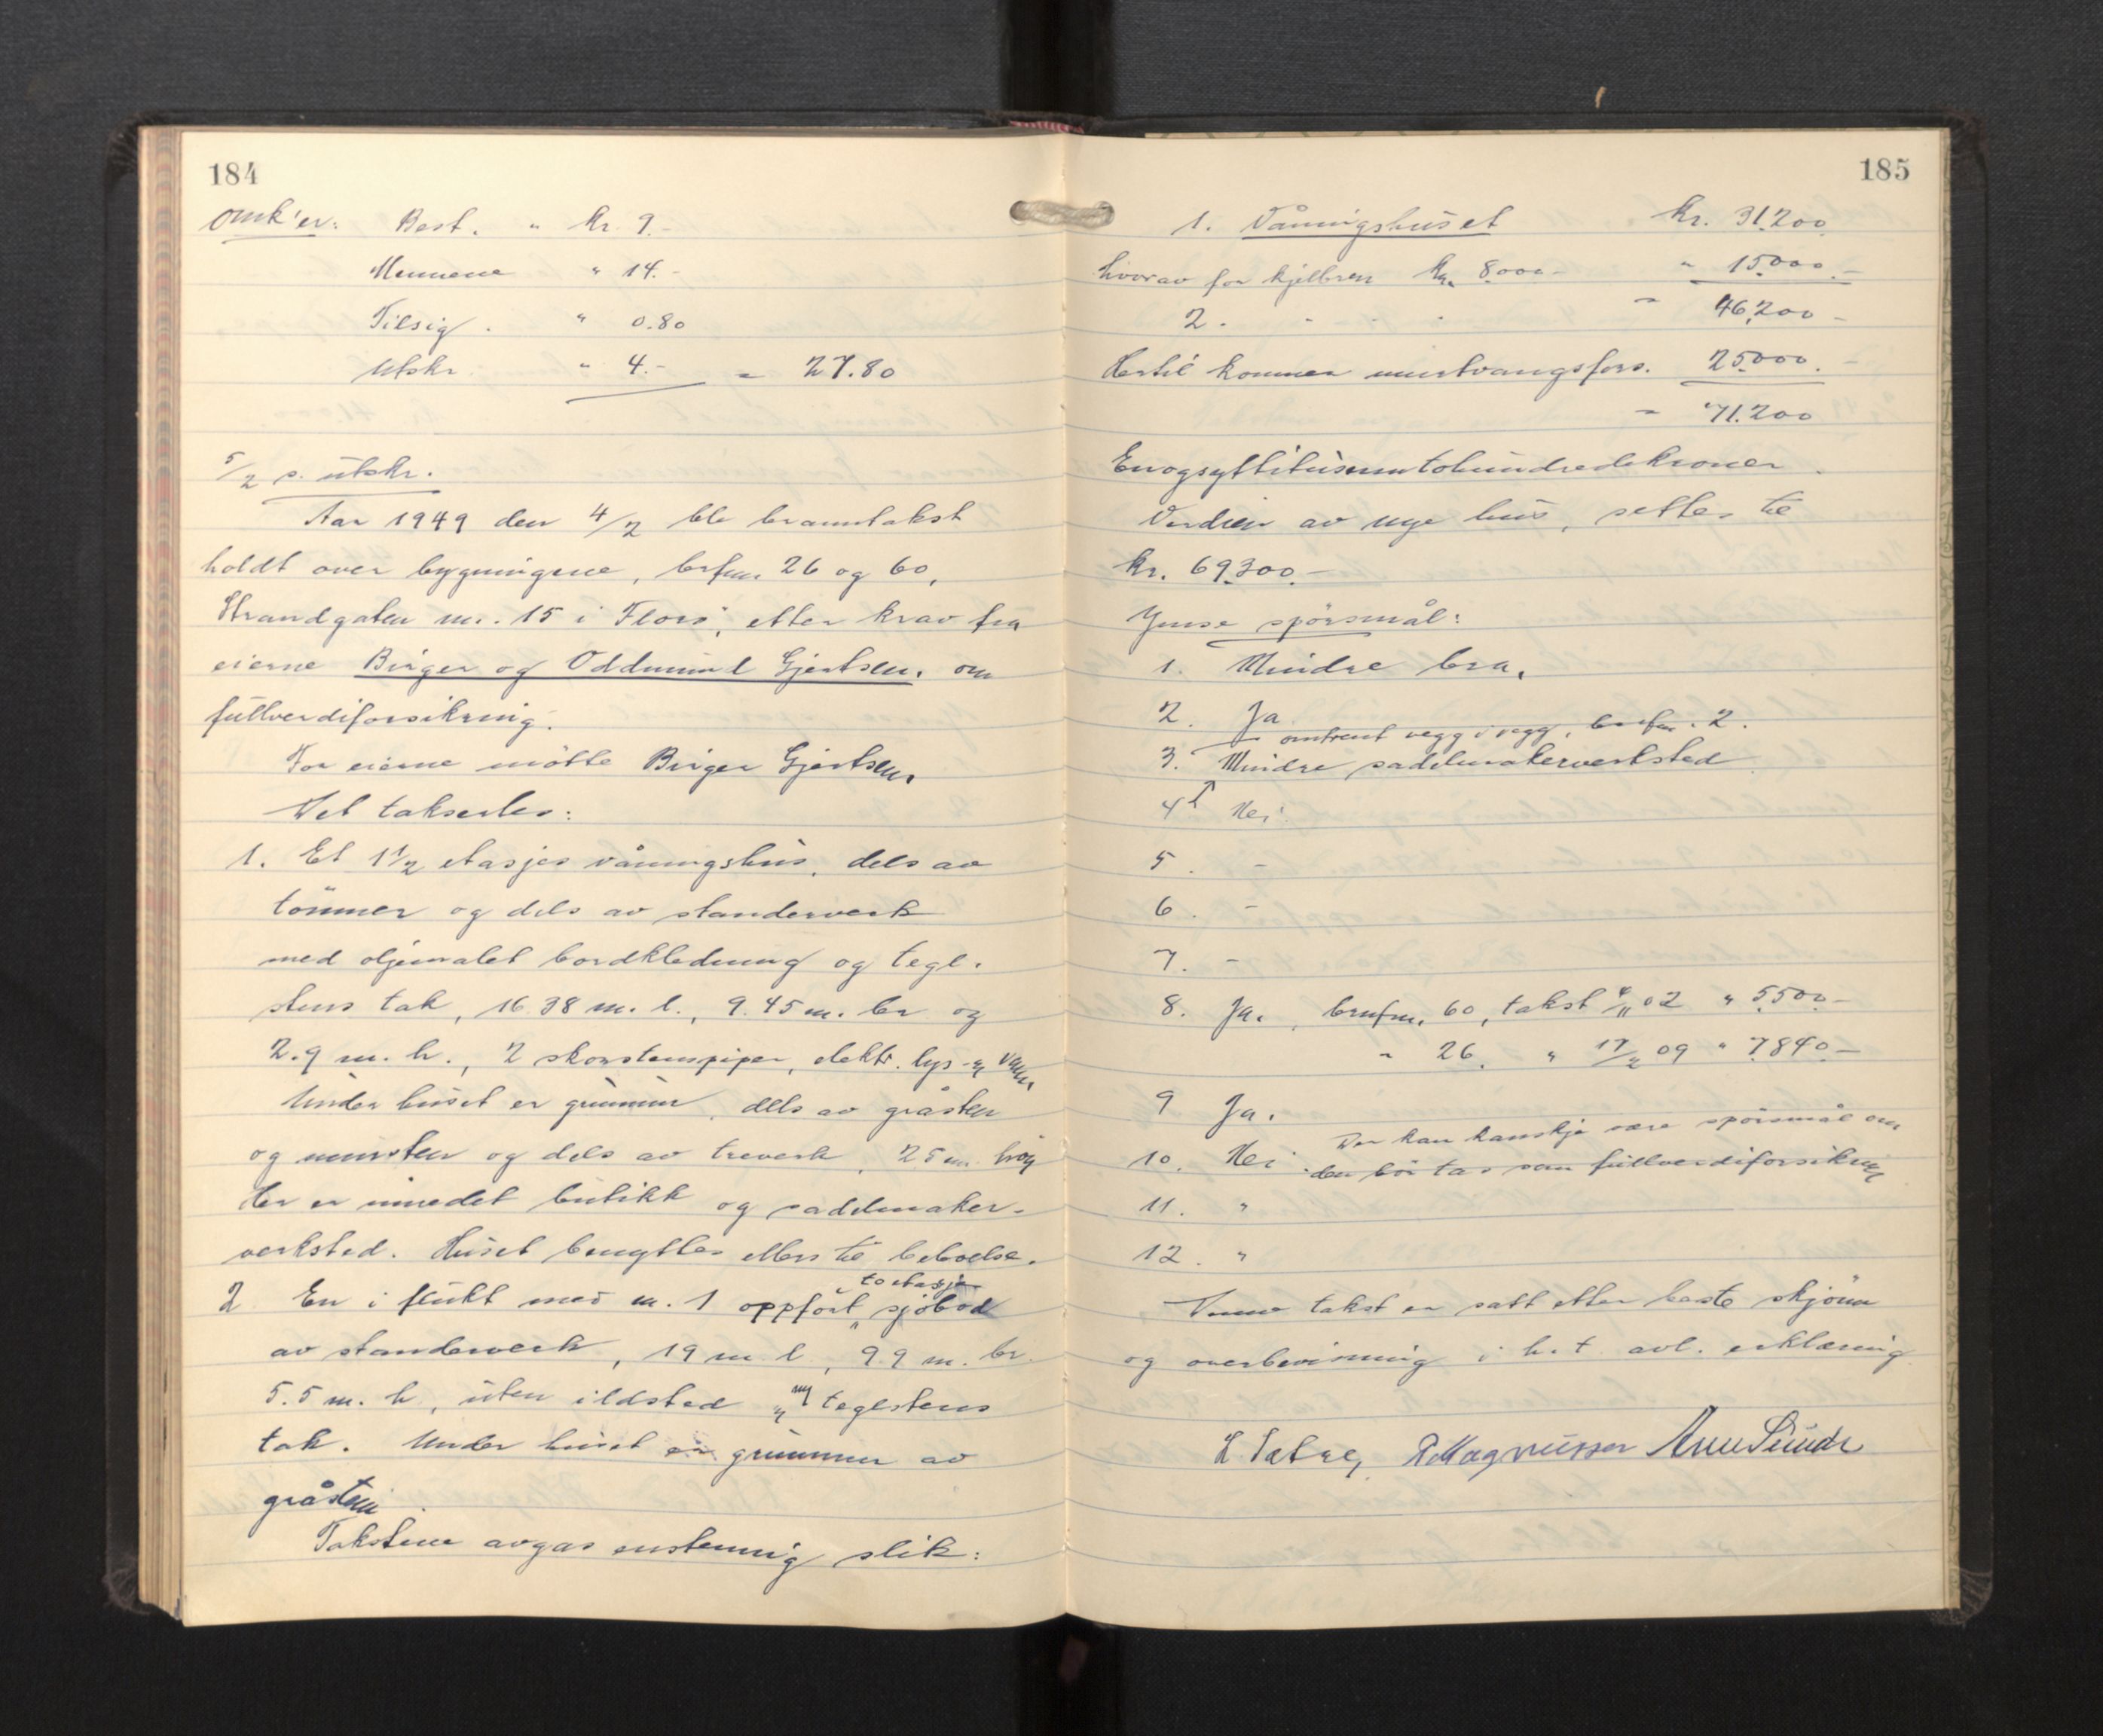 184
Omk'er: Best. " kr. 9.-
Mennene " 14.-
Tilsig. " 0.80
Utskr. " 4.- = 27.80
5/2 s. utskr.
Aar 1949 den 4/2 ble branntakst
holdt over bygningene, brfnr. 26 og 60,
Strandgaten nr. 15 i Florö, etter krav fra
eierne Birger og Oddmund Gjertsen, om
fullverdiforsikring.
For eierne mötte Birger Gjertsen.
Det taksertes:
1. Et 1 1/2 etasjes våningshus, dels av
tömmer og dels av standerverk
med oljemalet bordkledning og tegl-
stens tak, 16.38 m. l., 9.45 m. br. og
2.9 m. h., 2 skorstenspiper, elektr. lys og vann
Under huset er grunnmur, dels av gråsten
og mursten og dels av treverk, 2.5 m. höy
Her er innredet butikk og sadelmaker-
verksted. Huset benyttes ellers til beboelse.
to etasjes
2 En i flukt med nr. 1 oppfört sjöbod
av standerverk, 19 m. l., 9.9 m. br.
5.5 m. h., uten ildsted og teglstens
tak. Under huset er grunnmur av
gråsten.
Takstene avgas enstemmig slik:
185
1. Våningshuset kr. 31.200.
hvorav for kjelleren kr. 8000.- " 15.000.-
2. - - - " 46.200 -
Hertil kommer murtvangsfors. 25.000.-
" 71.200
Enogsyttitusentohundredekroner.
Verdien av nye hus, settes til
kr. 69.300.-
Ymse spörsmål:
1. Mindre bra.
2. Ja
omtrent vegg i vegg, brnfnr. 2.
3. Mindre sadelmakerverksted
4. Nei
5. -
6. -
7. -
8. Ja. brnfnr. 60, takst 4/11 02 " 5.500.-
" 26. " 17/2 09 " 7.840.-
9 Ja.
Der kan kanskje være spörsmål om
10. Nei. den bör tas som fullverdiforsikring
11. "
12. "
Denne takst er satt etter beste skjönn
og overbevisning i h. t. avl. erklæring
L Sætre, R Magnussen Arne Sunde